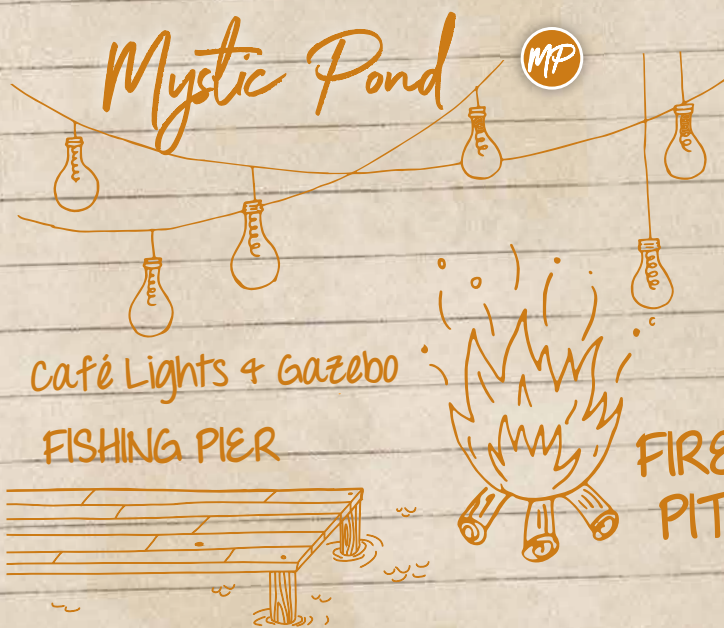 Mystic Pond
MP
Café Lights & Gazebo
FISHING PIER
FIRE
PIT